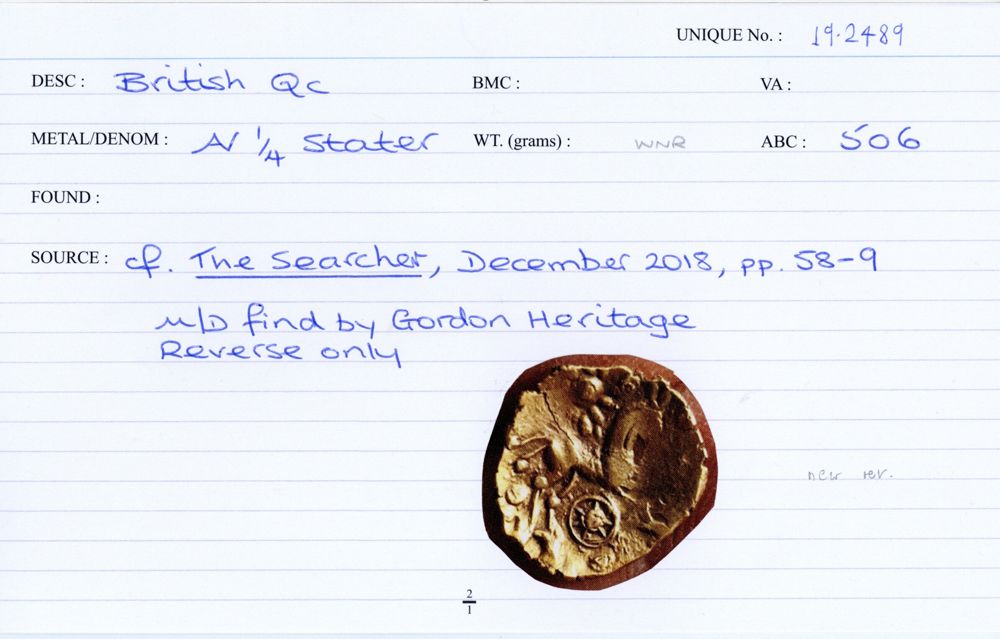 UNIQUE No. : 19.2489
DESC : British Qc BMC : VA :
METAL/DENOM : AV 1/4 Stater WT. (grams) : WNR ABC : 506
FOUND :
SOURCE : cf. The Searcher, December 2018, pp. 58-9
M/D find by Gordon Heritage
Reverse only
new rev.
2
1